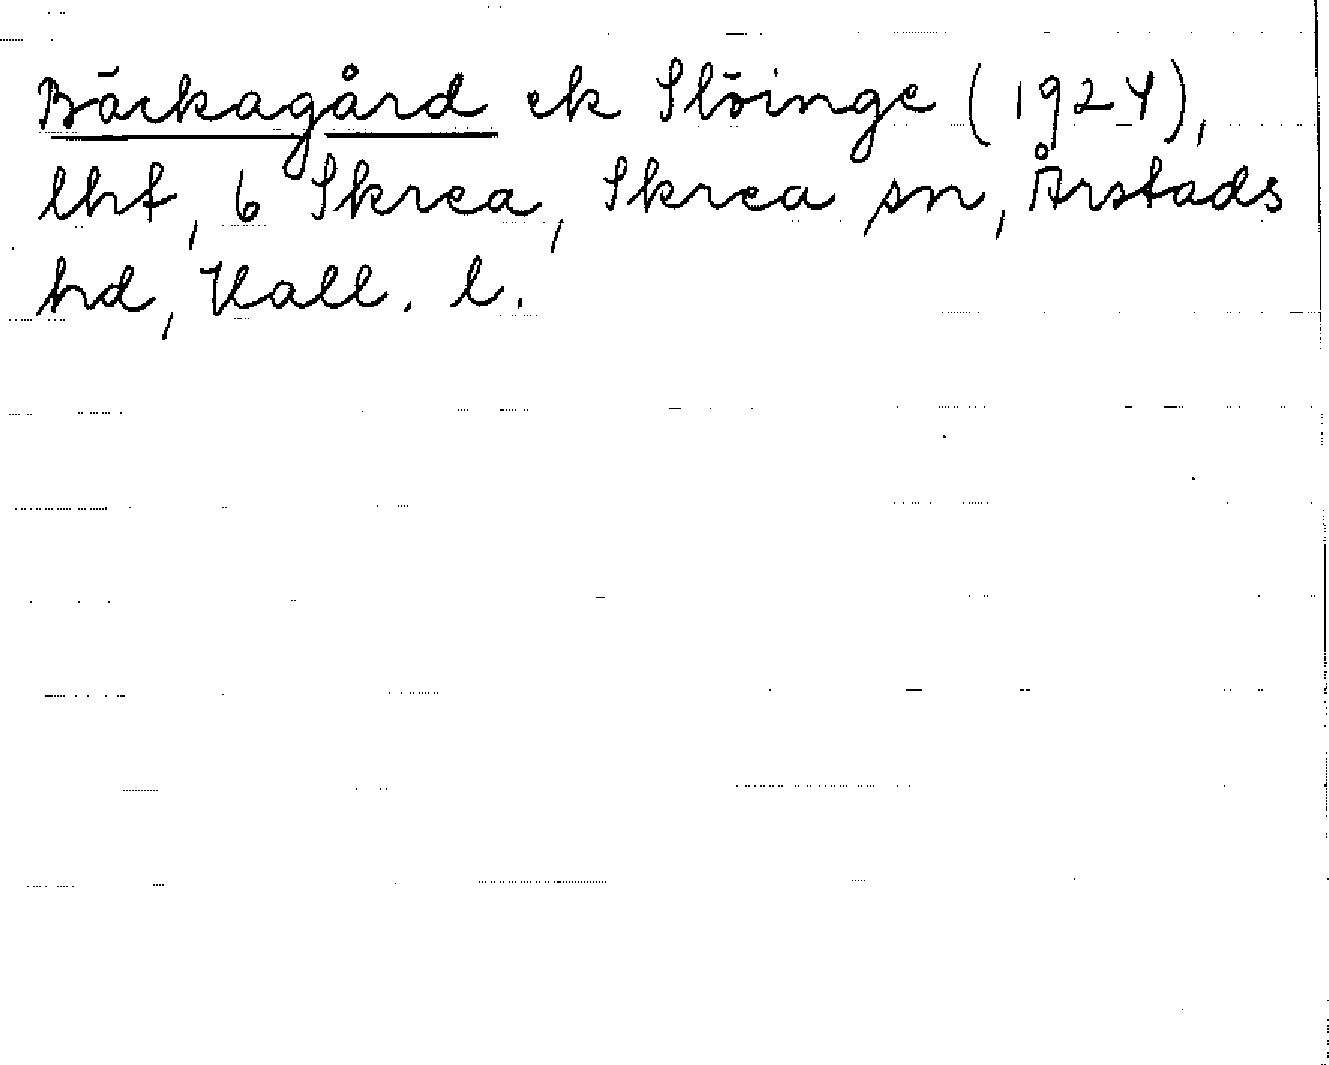 Bäckagård ek Slöinge (1924),
lht, 6 Skrea, Skrea sn, Årstads
hd, Hall. l.